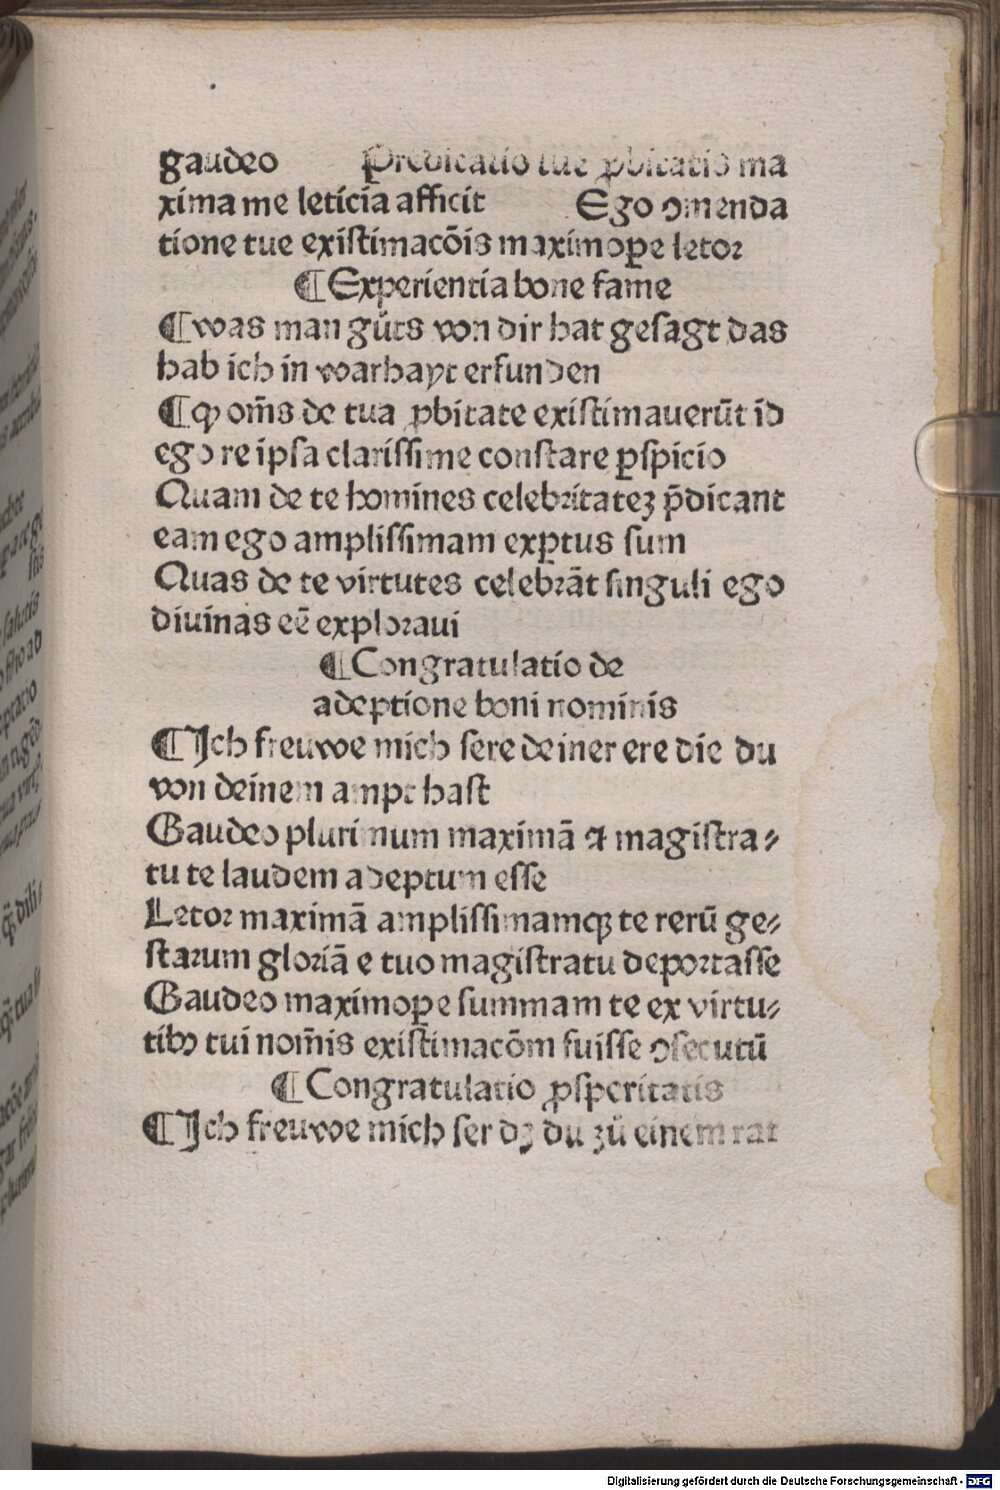 gaudeo Predicatio tue ꝓbitatis ma
xima me leticia afficit Ego ↄmenda
tione tue existimacõis maximoꝑe letor
¶Experientia bone fame
¶was man gůts von dir hat gesagt das
hab ich in warhayt erfunden
¶Qꝫ om̃s de tua ꝓbitate existimauerũt id
ego re ipsa clarissime constare ꝑspicio
Quam de te homines celebritateꝫ p̃dicant
eam ego amplissimam exꝑtus sum
Quas de te virtutes celebrãt singuli ego
diuinas eẽ exploraui
¶Congratulatio de
adeptione boni nominis
¶Ich freuwe mich sere deiner ere die du
von deinem ampt hast
Gaudeo plurimum maximã ex magistra⸗
tu te laudem adeptum esse
Letor maximã amplissimamqꝫ te rerũ ge⸗
starum gloriã e tuo magistratu deportasse
Gaudeo maximoꝑe summam te ex virtu⸗
tibꝰ tui nom̃is existimacõm fuisse ↄsecutũ
¶Congratulatio ꝓsperitatis
¶Ich freuwe mich ser dꝫ du zů einem rat
Digitalisierung gefördert durch die Deutsche Forschungsgemeinschaft - DFG